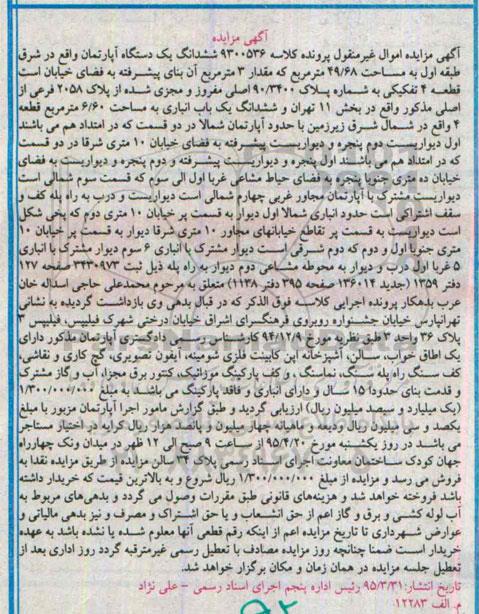 آگهی مزایده
آگهی مزایده اموال غیرمنقول پرونده کلاسه ۹۳۰۰۵۳۶ ششدانگ یک دستگاه آپارتمان واقع در شرق
طبقه اول به مساحت ۴۹/۶۸ مترمربع که مقدار ۳ مترمربع آن بنای پیشرفته به فضای خیابان است
قطعه ۴ تفکیکی به شماره پلاک ۹۰/۳۴۰۰ اصلی مفروز و مجزی شده از پلاک ۲۰۵۸ فرعی از
اصلی مذکور واقع در بخش ۱۱ تهران و ششدانگ یک باب انباری به مساحت ۶/۶۰ مترمربع قطعه
۴ واقع در شمال شرق زیرزمین با حدود آپارتمان شمالا در دو قسمت که در امتداد هم می باشند
اول دیواریست دوم پنجره و دیواریست پیشرفته به فضای خیابان ۱۰ متری شرقا در دو قسمت
که در امتداد هم می باشند اول پنجره و دیواریست پیشرفته و دوم پنجره و دیواریست به فضای
خیابان ده متری جنوبا پنجره به فضای حیاط مشاعی غربا اول الی سوم که قسمت سوم شمالی است
دیواریست مشترک با آپارتمان مجاور غربی چهارم شمالی است دیواریست و درب به راه پله کف و
سقف اشتراکی است حدود انباری شمالا اول دیوار به قسمت پر خیابان ۱۰ متری دوم که پخی شکل
است دیواریست به قسمت پر تقاطع خیابانهای مجاور ۱۰ متری شرقا دیوار به قسمت پر خیابان ۱۰
متری جنوبا اول و دوم که دوم شرقی است دیوار مشترک با انباری ۶ سوم دیوار مشترک با انباری
۵ غربا اول درب و دیوار به محوطه مشاعی دوم دیوار به راه پله ذیل ثبت ۳۴۳۰۹۷۳ صفحه ۱۲۷
دفتر ۱۳۵۹ (جدید ۱۳۶۰۱۴ صفحه ۳۹۵ دفتر ۱۱۳۸) متعلق به مرحوم محمدعلی حاجی اسداله خان
عرب بدهکار پرونده اجرایی کلاسه فوق الذکر که در قبال بدهی وی بازداشت گردیده به نشانی
تهرانپارس خیابان جشنواره روبروی فرهنگسرای اشراق خیابان درختی شهرک فیلیپس، فیلیپس ۳
پلاک ۳۶ واحد ۴ طبق نظریه مورخ ۹۴/۱۲/۹ کارشناس رسمی دادگستری آپارتمان مذکور دارای
یک اطاق خواب، سالن، آشپزخانه اپن کابینت فلزی شومینه، آیفون تصویری، گچ کاری و نقاشی،
کف سنگ راه پله سنگ، نماسنگ و کف پارکینگ موزائیک، کنتور برق مجزا، آب و گاز مشترک
و قدمت بنای حدودا ۱۵ سال و دارای انباری و فاقد پارکینگ می باشد به مبلغ ۱/۳۰۰/۰۰۰/۰۰۰
(یک میلیارد و سیصد میلیون ریال) ارزیابی گردید و طبق گزارش مامور اجرا آپارتمان مزبور با مبلغ
یکصد و سی میلیون ریال ودیعه و ماهیانه چهار میلیون و پانصد هزار ریال کرایه در اختیار مستاجر
می باشد در روز یکشنبه مورخ ۹۵/۴/۲۰ از ساعت ۹ صبح الی ۱۲ ظهر در میدان ونک چهارراه
جهان کودک ساختمان معاونت اجرای اسناد رسمی پلاک ۴ سالن مزایده از طریق مزایده نقدا به
فروش می رسد و مزایده از مبلغ ۱/۳۰۰/۰۰۰/۰۰۰ ریال شروع و به بالاترین قیمت که خریدار داشته
باشد فروخته خواهد شد و هزینه‌های قانونی طبق مقررات وصول می گردد و بدهی‌های مربوط به
آب لوله کشی و برق و گاز اعم از حق انشعاب و یا حق اشتراک و مصرف و نیز بدهی مالیاتی و
عوارض شهرداری تا تاریخ مزایده اعم از اینکه رقم قطعی آنها معلوم شده یا نشده باشد به عهده
خریدار است ضمنا چنانچه روز مزایده مصادف با تعطیل رسمی غیرمترقبه گردد روز اداری بعد از
تعطیل جلسه مزایده در همان زمان و مکان برگزار خواهد شد.
تاریخ انتشار: ۹۵/۳/۳۱ رئیس اداره پنجم اجرای اسناد رسمی - علی نژاد
م. الف ۱۲۲۸۳